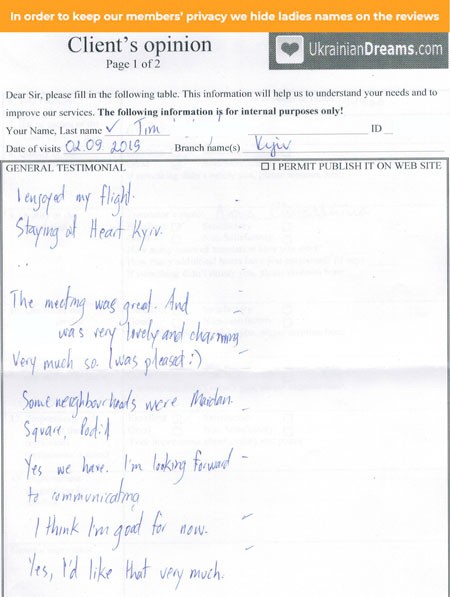 In order to keep our members' privacy we hide ladies names on the reviews
Client's opinion
Page 1 of 2
UkrainianDreams.com
Dear Sir, please fill in the following table. This information will help us to understand your needs and to
improve our services. The following information is for internal purposes only!
Your Name, Last name Tim ID
Date of visits 02.09 2019 Branch name(s) Kyiv
GENERAL TESTIMONIAL
I PERMIT PUBLISH IT ON WEB SITE
I enjoyed my flight.
Staying at Heart Kyiv.
The meeting was great. And
was very lovely and charming
Very much so. I was pleased :)
Some neighbourhoods were Maidan
Square, Podil
Yes we have. I'm looking forward
to communicating
I think I'm good for now.
Yes, I'd like that very much.